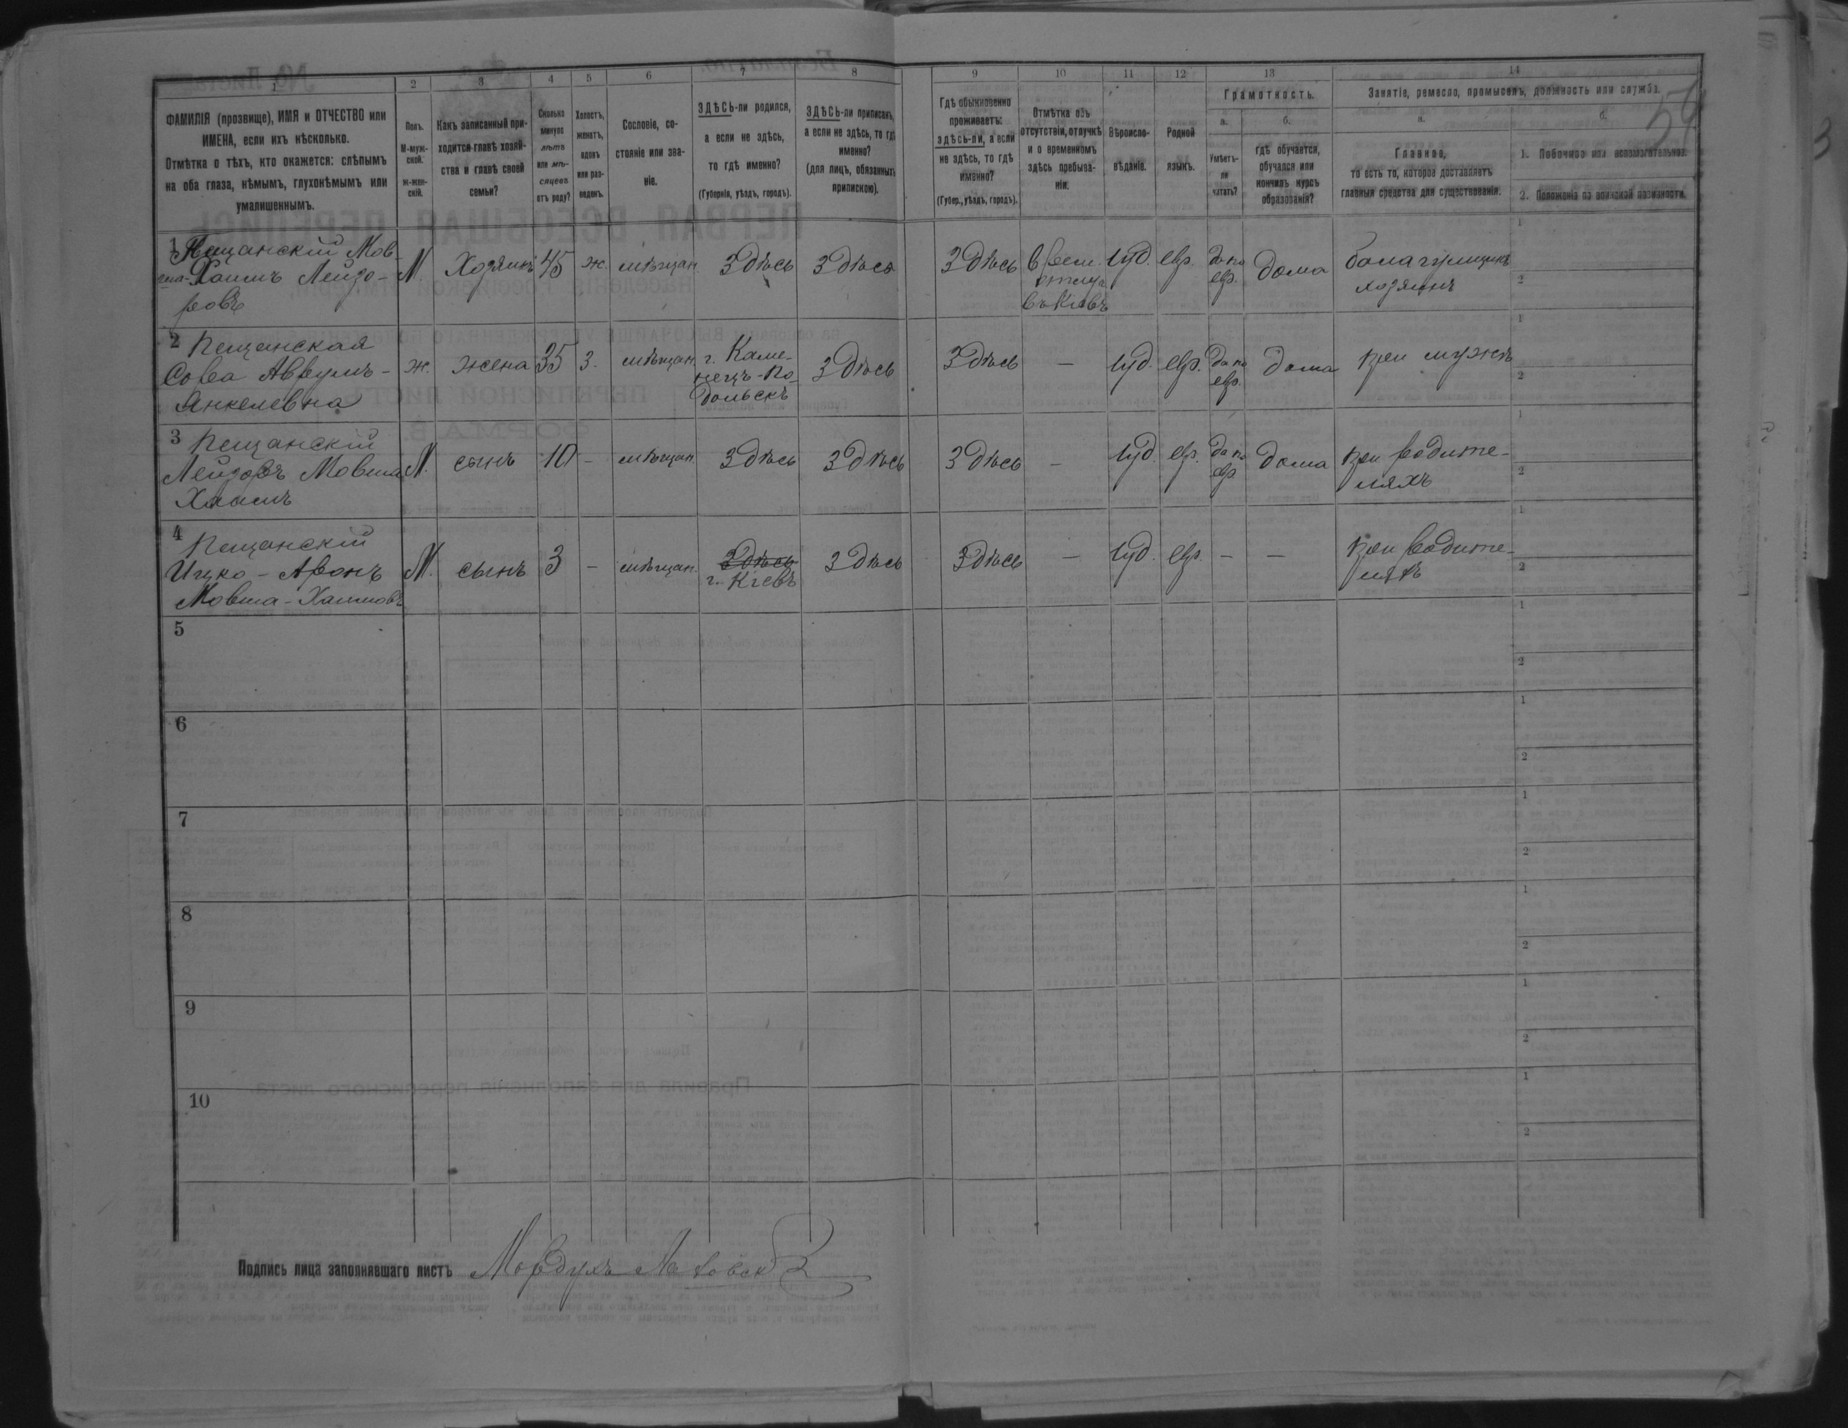 1 2 3 4 5 6 7 8 9 10 11 12 13 14
ФАМИЛІЯ (прозвище), ИМЯ и ОТЧЕСТВО или
ИМЕНА, если ихъ нѣсколько.
Отмѣтка о тѣхъ, кто окажется: слѣпымъ
на оба глаза, нѣмымъ, глухонѣмымъ или
умалишеннымъ.
Полъ.
М-муж-
ской.
ж-жен-
скій.
Какъ записанный при-
ходится главѣ хозяй-
ства и главѣ своей
семьи?
Сколько
минуло
лѣтъ
или мѣ-
сяцевъ
отъ роду?
Холостъ,
женатъ,
вдовъ
или раз-
веденъ.
Сословіе, со-
стояніе или зва-
ніе.
ЗДѢСЬ-ли родился,
а если не здѣсь,
то гдѣ именно?
(Губернія, уѣздъ, городъ).
ЗДѢСЬ-ли приписанъ,
а если не здѣсь, то гдѣ
именно?
(для лицъ, обязанныхъ
припискою).
Гдѣ обыкновенно
проживаетъ:
здѣсь-ли, а если
не здѣсь, то гдѣ
именно?
(Губер., уѣздъ, городъ).
Отмѣтка объ
отсутствіи, отлучкѣ
и о временномъ
здѣсь пребыва-
ніи.
Вѣроиспо-
вѣданіе.
Родной
языкъ.
Грамотность.
а.
Умѣетъ-
ли
читать?
б.
гдѣ обучается,
обучался или
кончилъ курсъ
образованія?
Занятіе, ремесло, промыселъ, должность или служба.
а.
Главное,
то есть то, которое доставляетъ
главныя средства для существованія.
б.
1. Побочное или вспомогательное.
2. Положеніе по воинской повинности.
54
1 Пещанскій Мов-
ша-Хаимъ Лейзо-
ровъ
М. Хозяинъ 45 ж. мѣщан. Здѣсь Здѣсь Здѣсь
въ Кіевъ
Іуд. евр. да по
евр. дома
хозяинъ
2 Пещанская
Сова Аврумъ-
Янкелевна
ж. жена 35 з. мѣщан. г. Каме-
нецъ-По-
дольскъ Здѣсь Здѣсь — Іуд. евр. да по
евр. дома при мужѣ
3 Пещанскій
Лейзоръ Мовша
Хаимъ
М. сынъ 10 - мѣщан. Здѣсь Здѣсь Здѣсь — Іуд. евр. да по
евр дома при родите-
ляхъ
4 Пещанскій
Ицко - Аронъ
Мовша-Хаимовъ
М. сынъ 3 - мѣщан. Здѣсь
г. Кіевъ Здѣсь Здѣсь — Іуд. евр. - — при родите-
ляхъ
5
6
7
8
9
10
Подпись лица заполнявшаго листъ Мордухъ